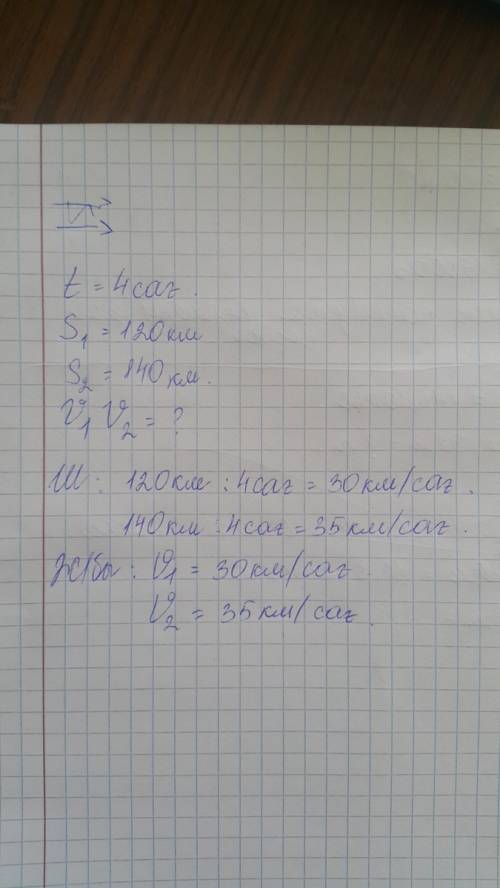 t = 4 сағ.
S₁ = 120 км
S₂ = 140 км.
V₁ V₂ = ?
Ш: 120 км : 4 сағ = 30 км/сағ.
140 км : 4 сағ = 35 км/сағ.
Ж/бы: V₁ = 30 км/сағ
V₂ = 35 км/сағ.